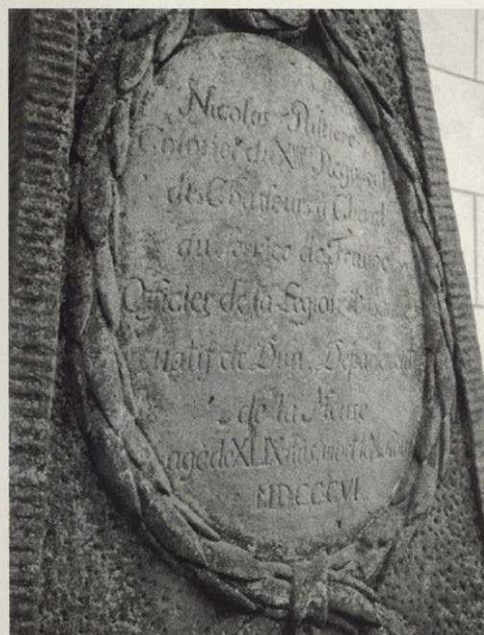 Nicolas
Colonel du XIIIme Regiment
des Chasseurs a Cheval
du Service de France
Officier de la Legion
natif de Dun Departement
de la Meuse
agé de XLIX ans mort le
MDCCCVI